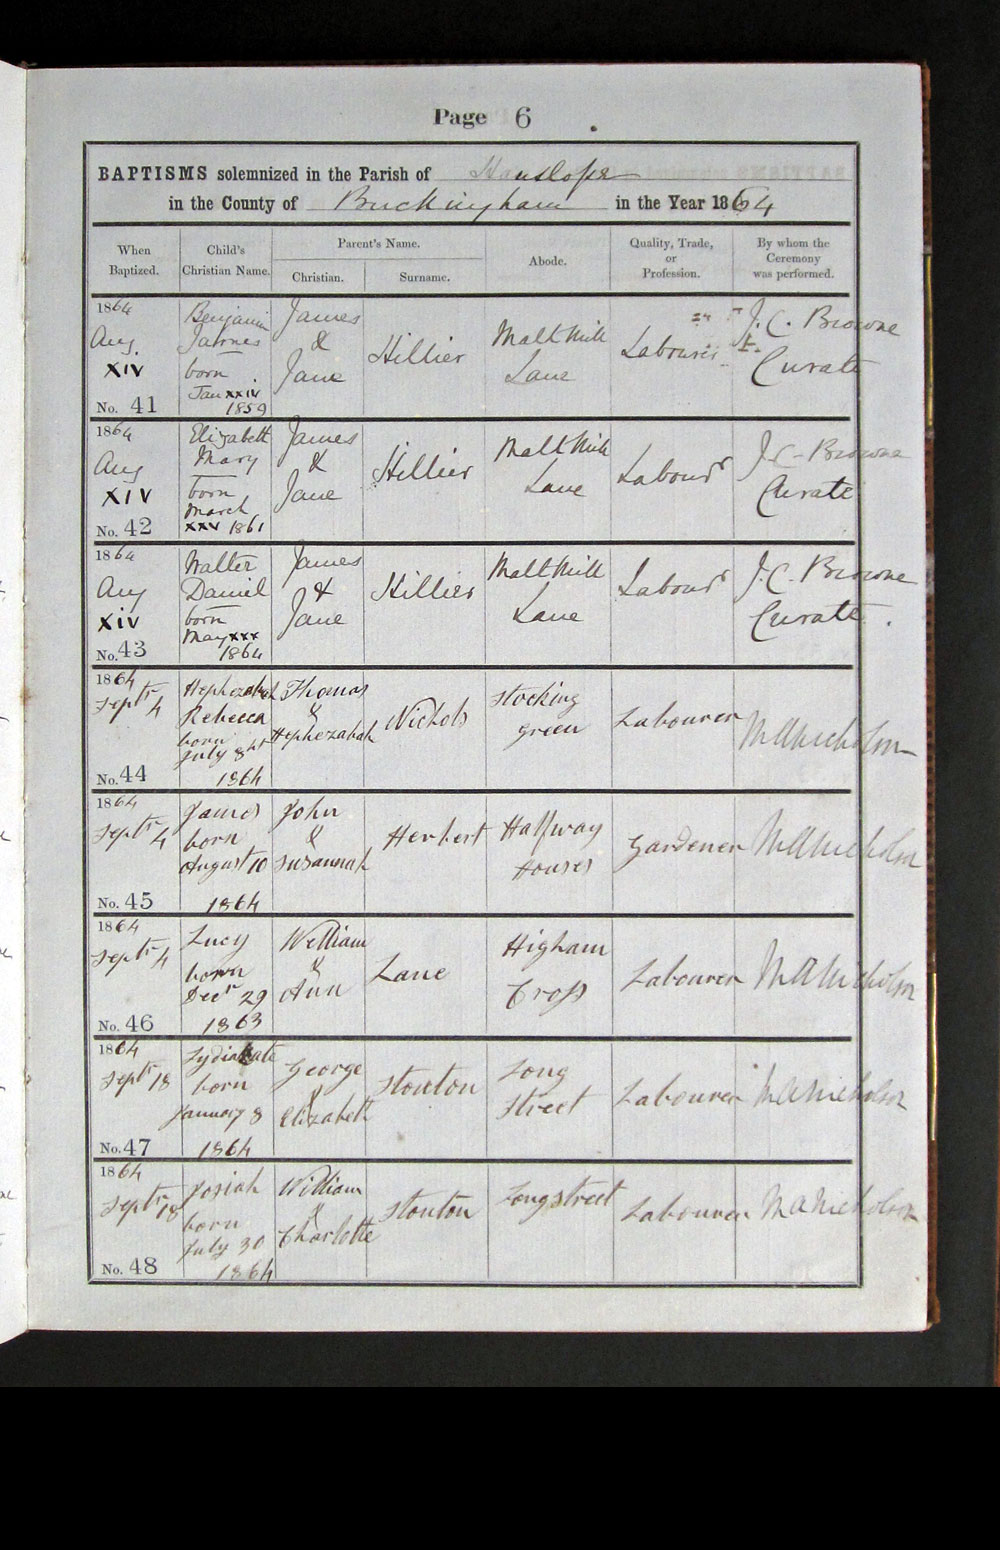 Page 6
BAPTISMS solemnized in the Parish of Hanslope
in the County of Buckingham in the Year 1864
When Baptized.
Child's Christian Name.
Parent's Name.
Christian.
Surname.
Abode.
Quality, Trade, or Profession.
By whom the Ceremony was performed.
1864
Aug
XIV
No. 41
Benjamin
James
born
Jan xxiv
1859
James
&
Jane
Hillier
Malt Mill
Lane
Labourer
J. C. Browne
Curate
1864
Aug
XIV
No. 42
Elizabeth
Mary
born
March
xxv 1861
James
&
Jane
Hillier
Malt Mill
Lane
Labourr
J. C. Browne
Curate
1864
Aug
XIV
No. 43
Walter
Daniel
born
May xxx
1864
James
&
Jane
Hillier
Malt Mill
Lane
Labourr
J. C. Browne
Curate
1864
Septr 4
No. 44
Hephezabah
Rebecca
born
July 8th
1864
Thomas
&
Hephezabah
Nichols
Stocking
green
Labourer
M A Nicholson
1864
Septr 4
No. 45
James
born
August 10
1864
John
&
Susannah
Herbert
Halfway
Houses
Gardener
M A Nicholson
1864
Septr 4
No. 46
Lucy
born
Decr 29
1863
William
&
Ann
Lane
Higham
Cross
Labourer
M A Nicholson
1864
Septr 18
No. 47
Lydia Kate
born
January 8
1864
George
&
Elizabeth
Stonton
Long
Street
Labourer
M A Nicholson
1864
Septr 18
No. 48
Josiah
born
July 30
1864
William
&
Charlotte
Stonton
Longstreet
Labourer
M A Nicholson